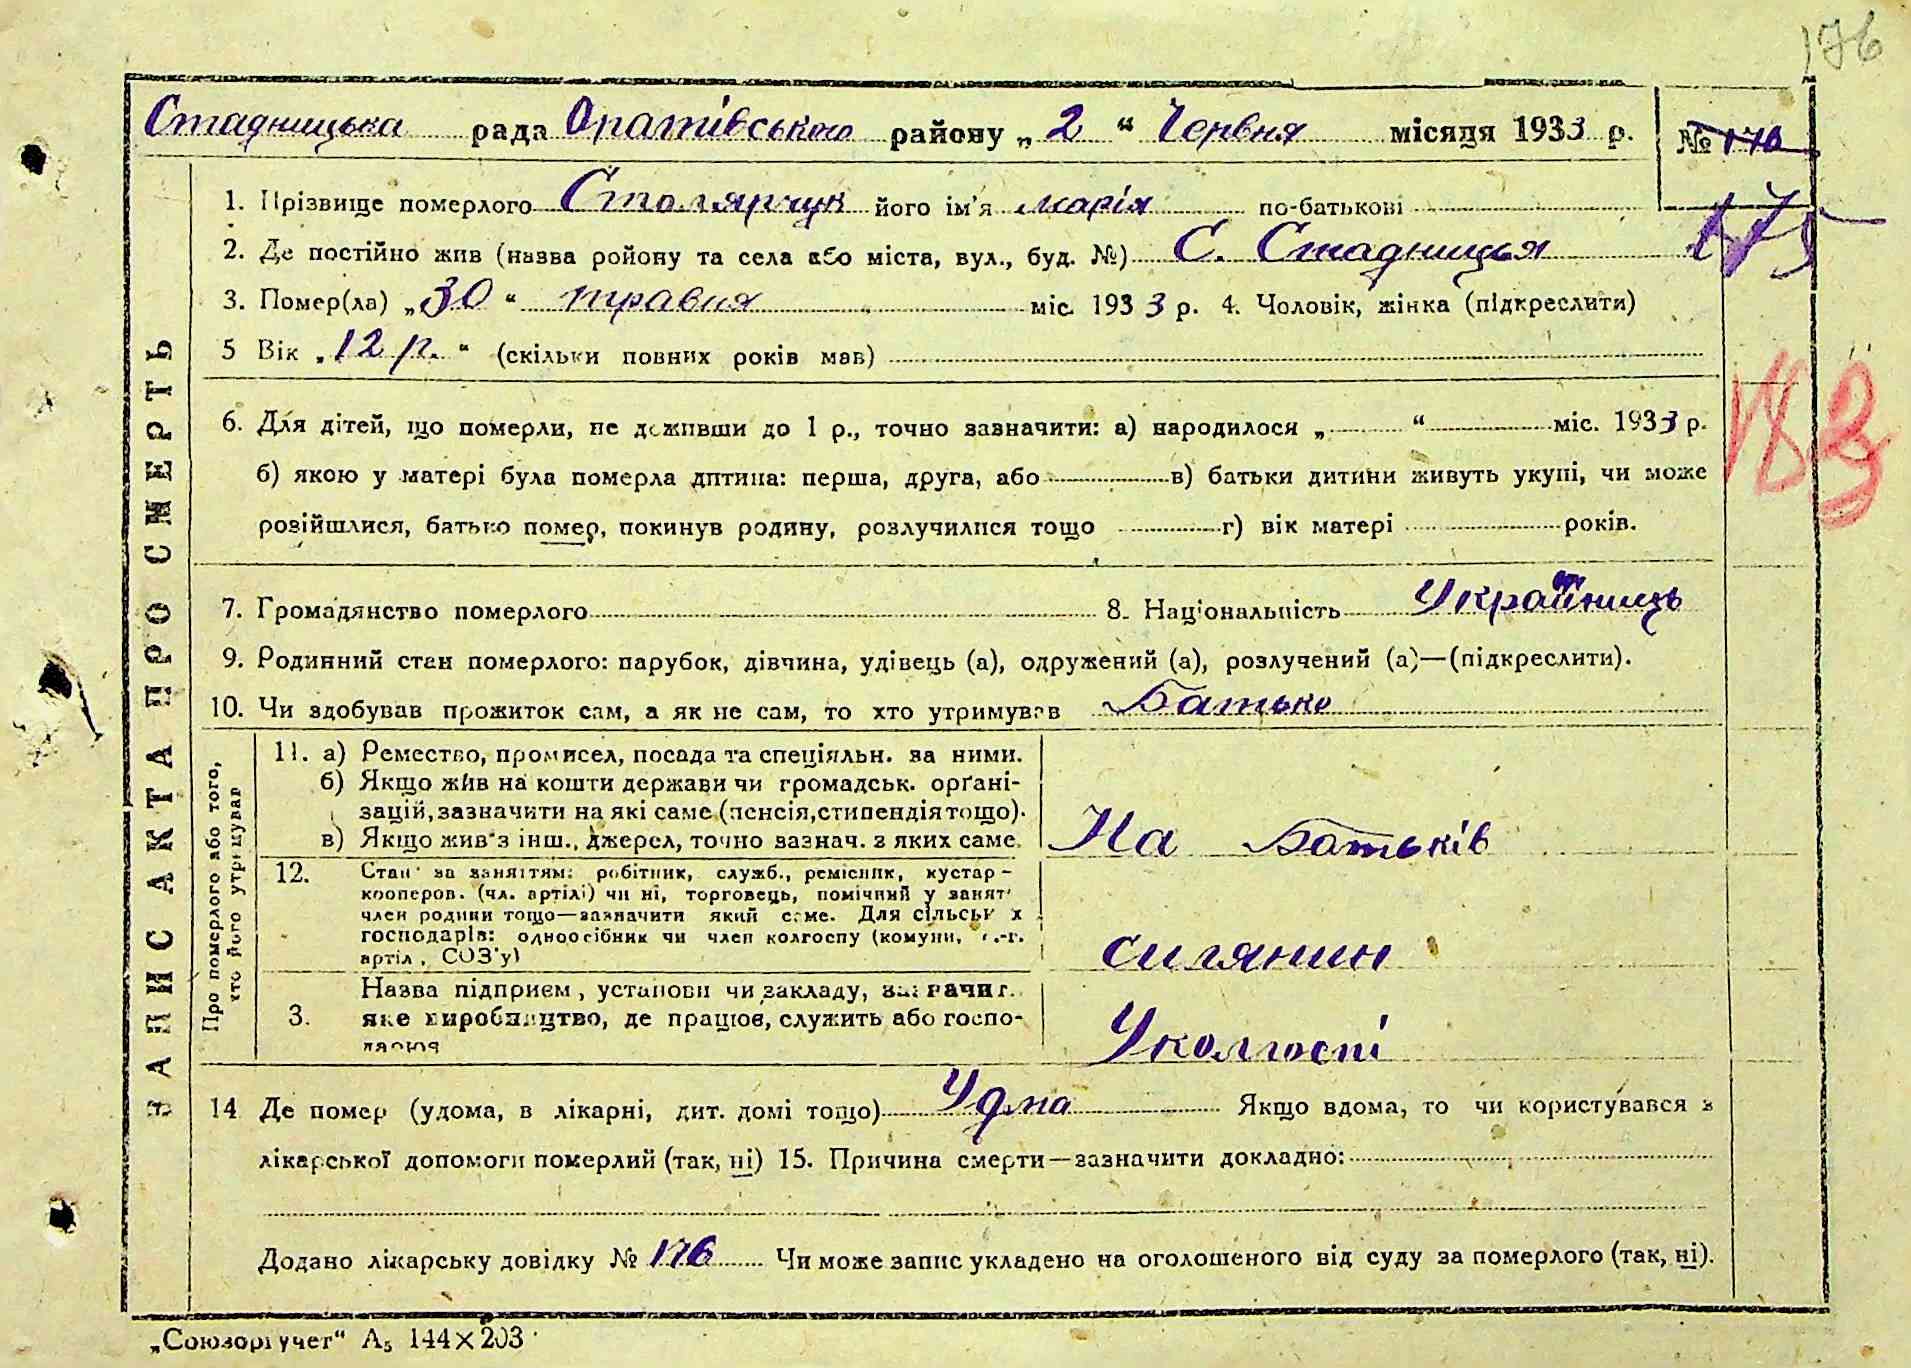 176
Стадницька рада Оратівського району „2“ Червня місяця 1933 р. № 176
1. Прізвище померлого Столярчук його ім'я марія по-батькові
175
2. Де постійно жив (назва ройону та села або міста, вул., буд. №) С. Стадниця
3. Помер(ла) „30“ травня міс. 1933 р. 4. Чоловік, жінка (підкреслити)
5 Вік „12 р.“ (скільки повних років мав)
183
6. Для дітей, що померли, не доживши до 1 р., точно зазначити: а) народилося „ “ міс. 1933 р.
б) якою у матері була померла дптина: перша, друга, або в) батьки дитини живуть укупі, чи може
розійшлися, батько помер, покинув родину, розлучилися тощо г) вік матері років.
7. Громадянство померлого 8. Національність Українець
9. Родинний стан померлого: парубок, дівчина, удівець (а), одружений (а), розлучений (а)—(підкреслити).
10. Чи здобував прожиток сам, а як не сам, то хто утримував Батько
11. а) Ремество, промисел, посада та спеціяльн. за ними.
б) Якщо жив на кошти держави чи громадськ. орґані-
зацій, зазначити на які саме (пенсія, стипендія тощо).
в) Якщо жив з інш., джерел, точно зазнач. з яких саме. На Батьків
12. Стан за заняттям: робітник, служб., ремісник, кустар-
кооперов. (чл. артілі) чи ні, торговець, помічний у занят
член родини тощо—зазначити який саме. Для сільськ х
господарів: одноосібник чи член колгоспу (комуни, с.-г.
артіл, СОЗ'у) силянин
Назва підприєм, установи чи закладу, зазначит.
3. яке виробництво, де працює, служить або госпо-
дарює Уколгоспі
Про померлого або того,
хто його утримував
ЗАПИС АКТА ПРО СМЕРТЬ
14 Де помер (удома, в лікарні, дит. домі тощо) Удма Якщо вдома, то чи користувався з
лікарської допомоги померлий (так, ні) 15. Причина смерти—зазначити докладно:
Додано лікарську довідку № 176 Чи може запис укладено на оголошеного від суду за померлого (так, ні).
„Союзоргучет“ А₅ 144×203